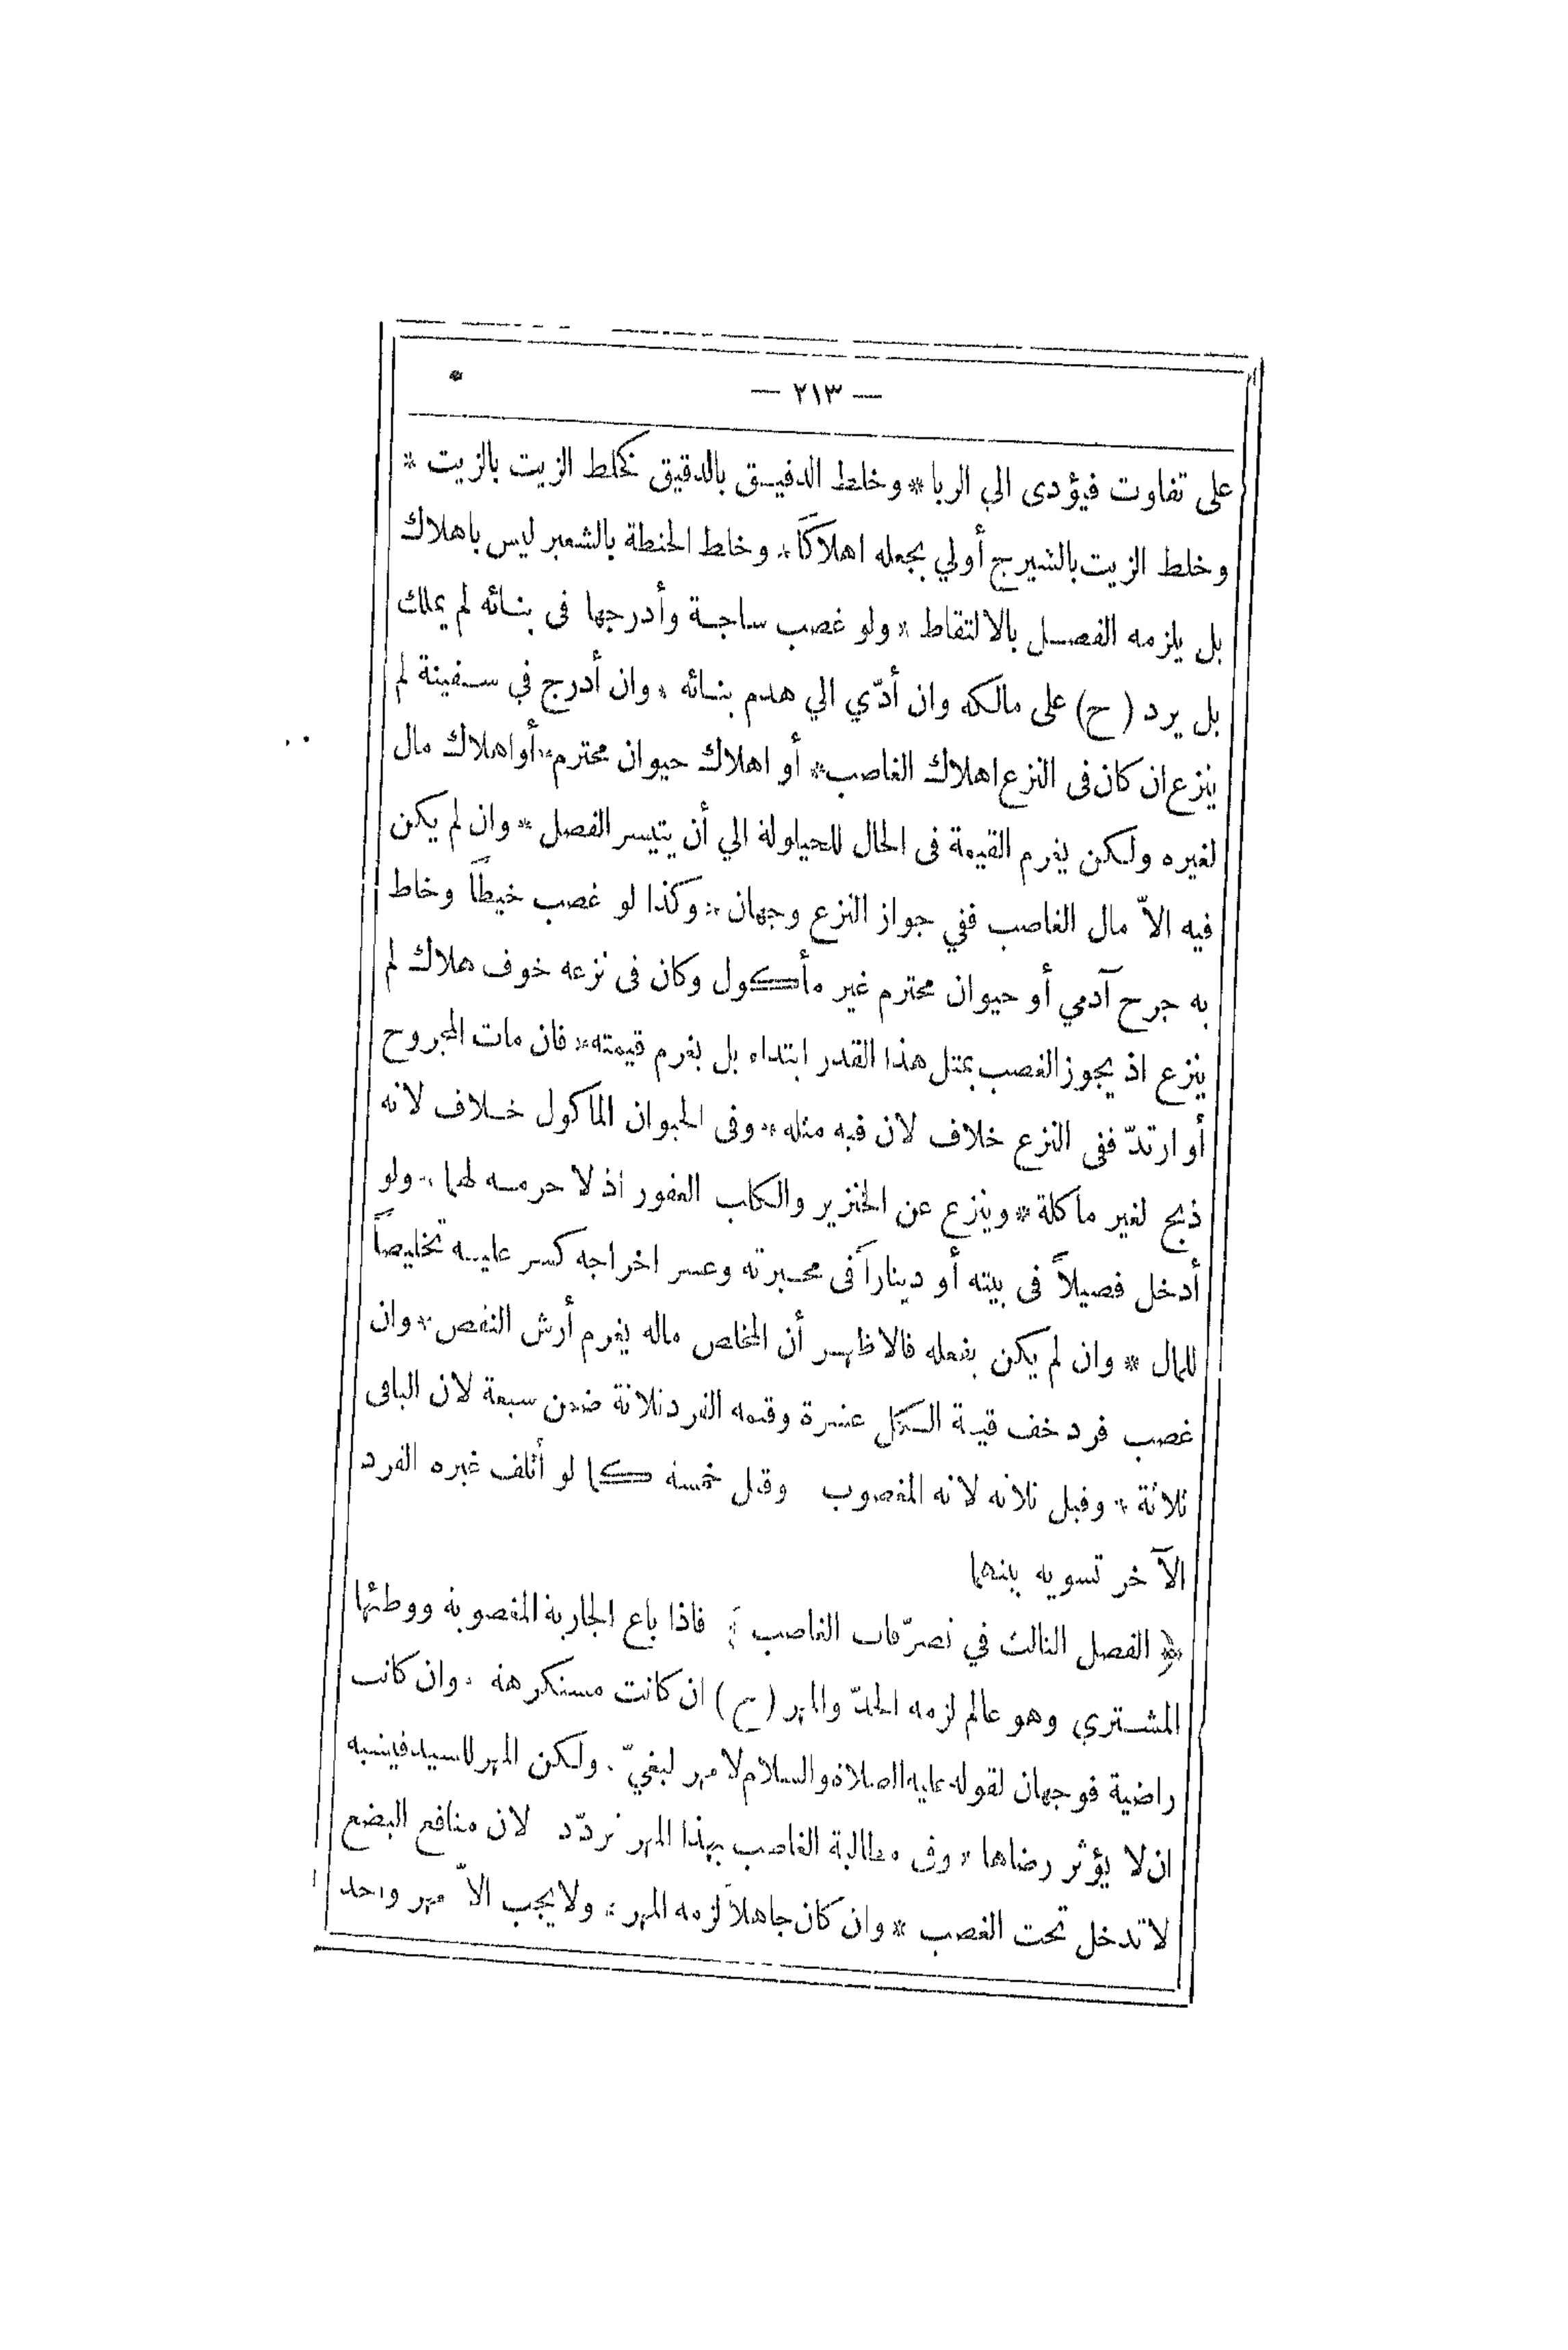 — ٢١٣ —
على تفاوت فيؤدى الي الربا * وخلط الدقيق بالدقيق كخلط الزيت بالزيت *
وخلط الزيت بالشيرج أولي بجعله اهلاكاً * وخلط الحنطة بالشعير ليس باهلاك
بل يلزمه الفصل بالالتقاط * ولو غصب ساجة وأدرجها فى بنائه لم يملك
بل يرد (ح) على مالكه وان أدّي الي هدم بنائه * وان أدرج في سفينة لم
ينزع ان كان فى النزع اهلاك الغاصب * أو اهلاك حيوان محترم * أو اهلاك مال
لغيره ولكن يغرم القيمة فى الحال للحيلولة الي أن يتيسر الفصل * وان لم يكن
فيه الاّ مال الغاصب ففي جواز النزع وجهان * وكذا لو غصب خيطاً وخاط
به جرح آدمي أو حيوان محترم غير مأكول وكان فى نزعه خوف هلاك لم
ينزع اذ يجوز الغصب بمثل هذا القدر ابتداء بل يغرم قيمته * فان مات المجروح
أو ارتدّ ففى النزع خلاف لان فيه مثله * وفى الحيوان الماكول خلاف لانه
ذبح لغير مأكلة * وينزع عن الخنزير والكلب العقور اذ لا حرمه لهما * ولو
أدخل فصيلاً فى بيته أو ديناراً فى محبرته وعسر اخراجه كسر عليه تخليصاً
للمال * وان لم يكن بفعله فالاظهر أن المخلص ماله يغرم أرش النقص * وان
غصب فرد خف قيمة الكل عشرة وقيمه الفرد ثلاثة ضمن سبعة لان الباقى
ثلاثة * وقيل ثلاثه لانه المغصوب وقيل خمسة كما لو أتلف غيره الفرد
الآخر تسويه بينهما
﴿ الفصل الثالث في تصرّفات الغاصب ﴾ فاذا باع الجارية المغصوبة ووطئها
المشتري وهو عالم لزمه الحدّ والمهر (ح) ان كانت مستكرهة * وان كانت
راضية فوجهان لقوله عليه الصلاة والسلام لا مهر لبغيّ * ولكن المهر للسيد فيشبه
ان لا يؤثر رضاها * وفى مطالبة الغاصب بهذا المهر تردّد لان منافع البضع
لا تدخل تحت الغصب * وان كان جاهلاً لزمه المهر * ولا يجب الاّ مهر واحد